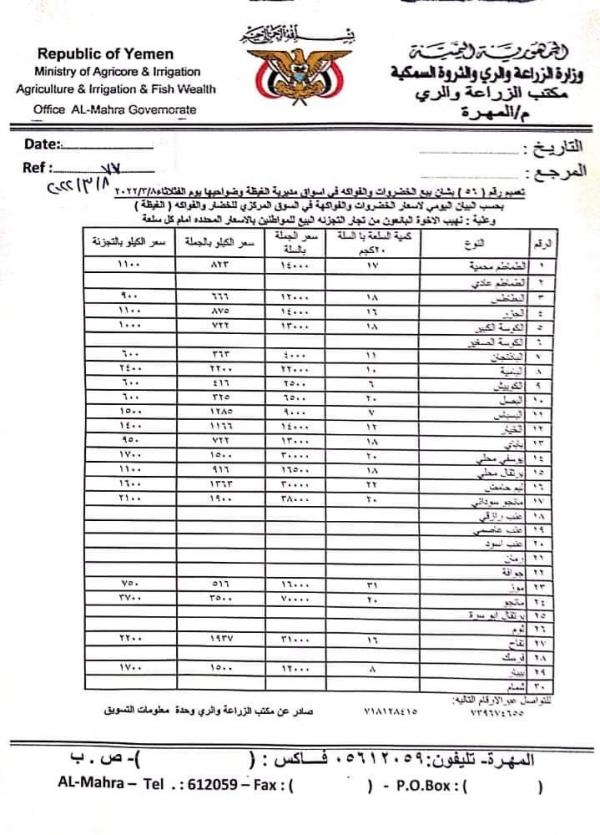 بسم الله الرحمن الرحيم
Republic of Yemen
Ministry of Agricore & Irrigation
Agriculture & Irrigation & Fish Wealth
Office AL-Mahra Govemorate
الجمهورية اليمنية
وزارة الزراعة والري والثروة السمكية
مكتب الزراعة والري
م/المهرة
Date:
Ref : ٧٧
٢٠٢٢/٣/٨
التاريخ :
المرجع :
تعميم رقم ( ٥٦ ) بشان بيع الخضروات والفواكه في اسواق مديرية الغيظة وضواحيها يوم الثلاثاء٢٠٢٢/٣/٨
بحسب البيان اليومي لاسعار الخضروات والفواكهة في السوق المركزي للخضار والفواكه ( الغيظة )
وعلية : نهيب الاخوة البائعون من تجار التجزئه البيع للمواطنين بالاسعار المحدده امام كل سلعة
الرقم النوع كمية السلعة با السلة ٢٠كجم سعر الجملة بالسلة سعر الكيلو بالجملة سعر الكيلو بالتجزئة
١ الطماطم محمية ١٧ ١٤٠٠٠ ٨٢٣ ١١٠٠
٢ الطماطم عادي
٣ البطاطس ١٨ ١٢٠٠٠ ٦٦٦ ٩٠٠
٤ الجزر ١٦ ١٤٠٠٠ ٨٧٥ ١١٠٠
٥ الكوسة الكبير ١٨ ١٣٠٠٠ ٧٢٢ ١٠٠٠
٦ الكوسة الصغير
٧ الباذنجان ١١ ٤٠٠٠ ٣٦٣ ٦٠٠
٨ البامية ١٠ ٢٢٠٠٠ ٢٢٠٠ ٢٤٠٠
٩ الكوبيش ٦ ٢٥٠٠ ٤١٦ ٦٠٠
١٠ البصل ٢٠ ٦٥٠٠ ٣٢٥ ٦٠٠
١١ البسباس ٧ ٩٠٠٠ ١٢٨٥ ١٥٠٠
١٢ الخيار ١٢ ١٤٠٠٠ ١١٦٦ ١٤٠٠
١٣ باباي ١٨ ١٣٠٠٠ ٧٢٢ ٩٥٠
١٤ يوسفي محلي ٢٠ ٣٠٠٠٠ ١٥٠٠ ١٧٠٠
١٥ برتقال محلي ١٨ ١٦٥٠٠ ٩١٦ ١١٠٠
١٦ ليم حامض ٢٢ ٣٠٠٠٠ ١٣٦٣ ١٦٠٠
١٧ مانجو سوداني ٢٠ ٣٨٠٠٠ ١٩٠٠ ٢١٠٠
١٨ عنب رازقي
١٩ عنب عاصمي
٢٠ عنب اسود
٢١ رمان
٢٢ جوافة
٢٣ موز ٣١ ١٦٠٠٠ ٥١٦ ٧٥٠
٢٤ مانجو ٢٠ ٧٠٠٠٠ ٣٥٠٠ ٣٧٠٠
٢٥ برتقال ابو سرة
٢٦ ثوم
٢٧ تفاح ١٦ ٣١٠٠٠ ١٩٣٧ ٢٢٠٠
٢٨ فرسك
٢٩ بيبار ٨ ١٢٠٠٠ ١٥٠٠ ١٧٠٠
٣٠ شمام
للتواصل عبر الارقام التاليه:
٧٣٩٦٧٤٦٥٥ ٧١٨١٢٨٤١٥ صادر عن مكتب الزراعة والري وحدة معلومات التسويق
المهرة- تليفون:٠٥٦١٢٠٥٩ فاكس : ( )- ص . ب
AL-Mahra – Tel . : 612059 – Fax : ( ) - P.O.Box : ( )